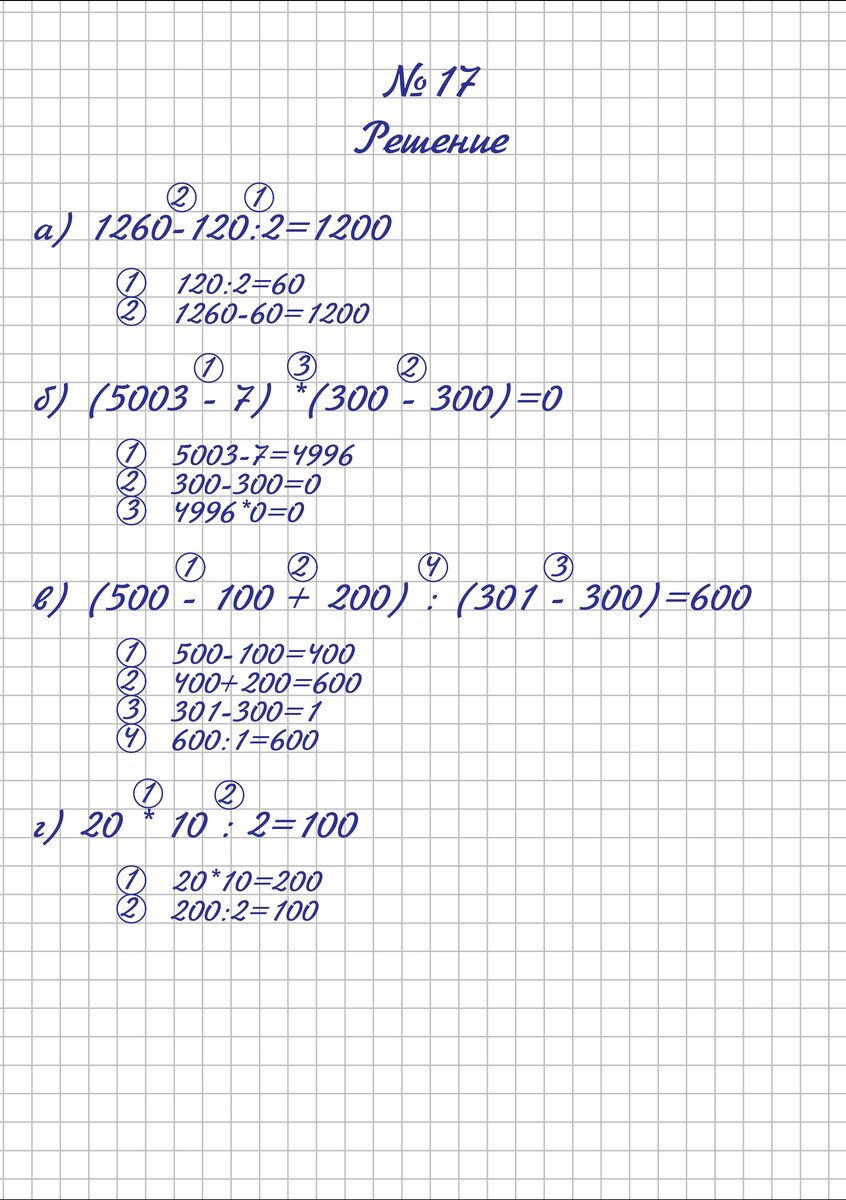 № 17
Решение
2 1
а) 1260-120:2=1200
1 120:2=60
2 1260-60=1200
1 3 2
б) (5003 - 7) *(300 - 300)=0
1 5003-7=4996
2 300-300=0
3 4996*0=0
1 2 4 3
в) (500 - 100 + 200) : (301 - 300)=600
1 500-100=400
2 400+200=600
3 301-300=1
4 600:1=600
1 2
г) 20 * 10 : 2=100
1 20*10=200
2 200:2=100